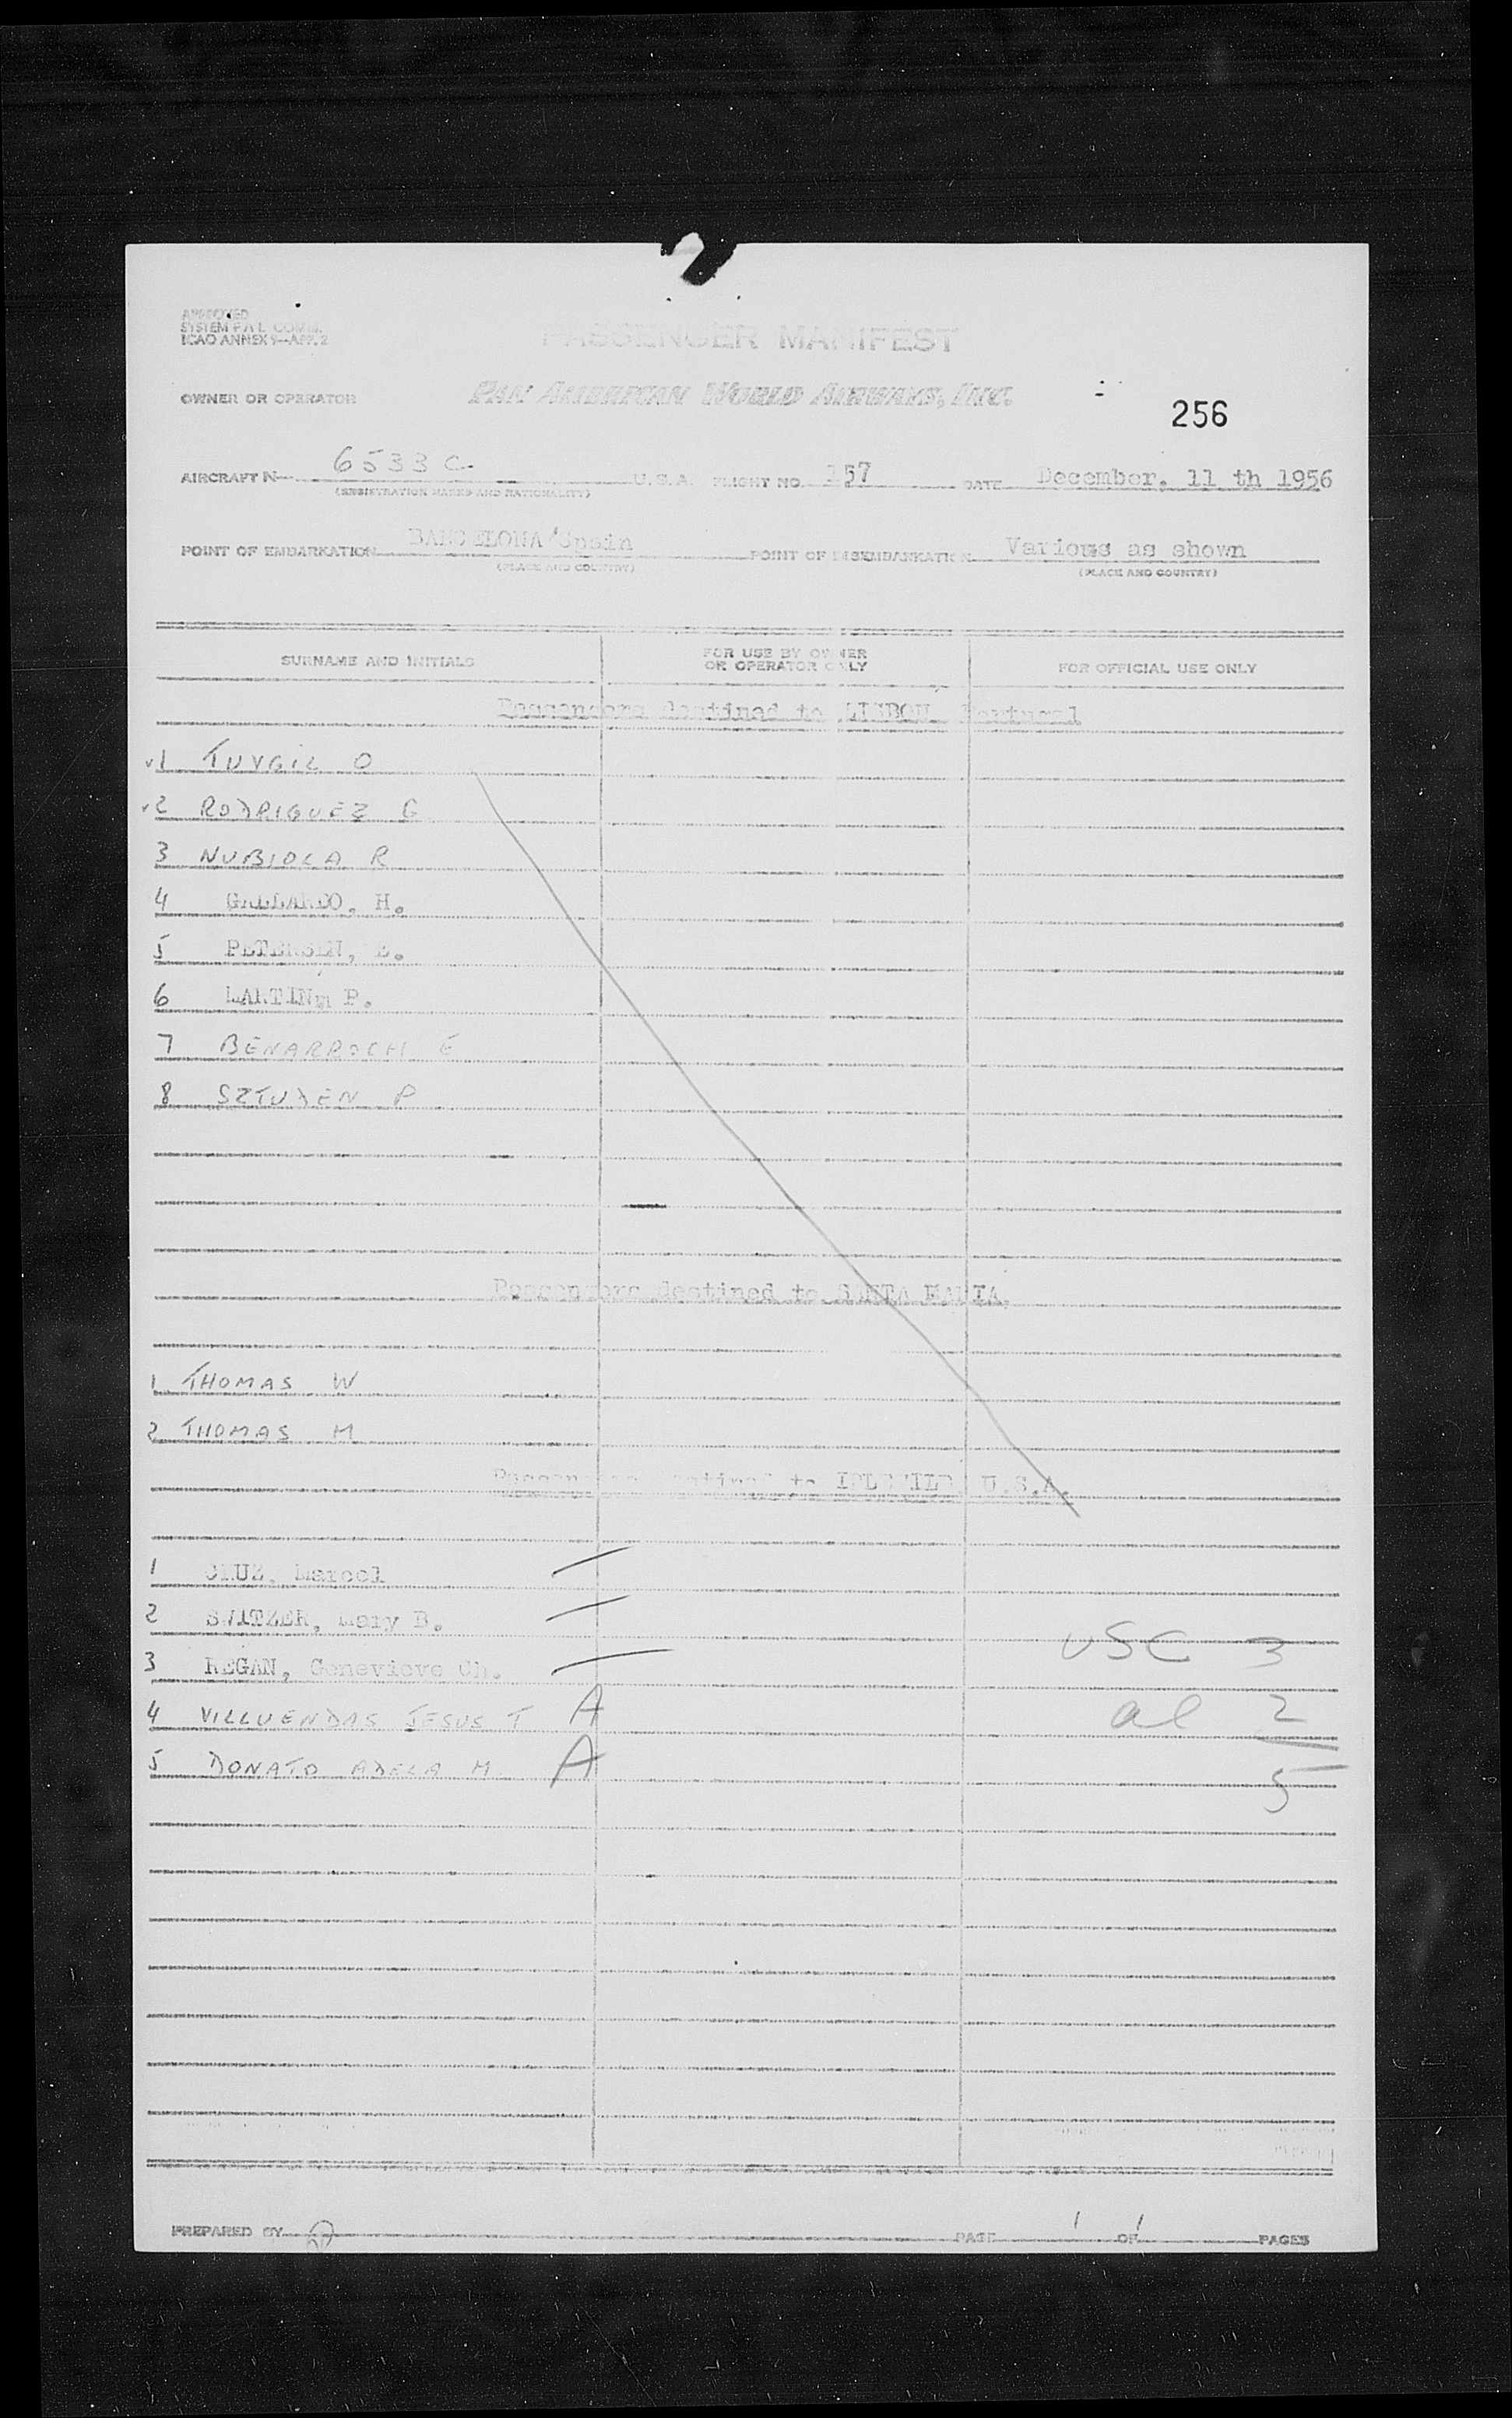 APPROVED
SYSTEM P.A.L. COMM.
ICAO ANNEX 9—APP. 2
PASSENGER MANIFEST
OWNER OR OPERATOR PAN AMERICAN WORLD AIRWAYS, INC.
256
AIRCRAFT N- 6533 C. U.S.A. FLIGHT NO. 157 DATE December, 11 th 1956
(REGISTRATION MARKS AND NATIONALITY)
POINT OF EMBARKATION BARCELONA Spain POINT OF DISEMBARKATION Various as shown
(PLACE AND COUNTRY) (PLACE AND COUNTRY)
SURNAME AND INITIALS FOR USE BY OWNER OR OPERATOR ONLY FOR OFFICIAL USE ONLY
Passengers destined to LISBON Portugal
1 TUVGIL O
2 RODRIGUEZ G
3 NUBIOLA R
4 GALLARDO, H.
5 PETERSEN, E.
6 P.
7 BENARROCH E
8 SZTUDEN P
Passengers destined to SANTA MARIA.
1 THOMAS W
2 THOMAS M
Passengers destined to IDLEWILD U.S.A.
1 CRUZ, Marcel
2 SWITZER, Mary B.
3 REGAN, Genevieve Ch. USC 3
4 VILLUENDAS JESUS T A al 2
5 DONATO ADELA M A 5
PREPARED BY PAGE 1 OF 1 PAGES